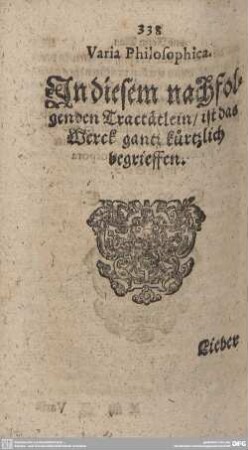 338
Varia Philosophica.
In diesem nachfol-
genden Tractätlein/ ist das
Werck gantz kürtzlich
begrieffen.
Lieber